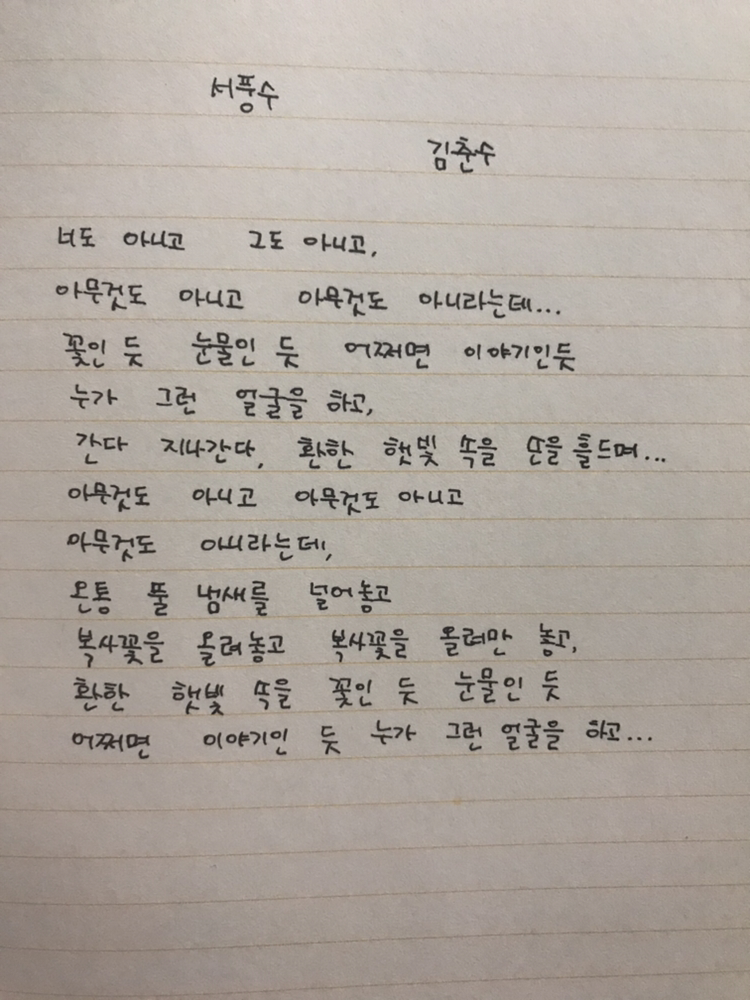 서풍수
김춘수
너도 아니고 그도 아니고,
아무것도 아니고 아무것도 아니라는데...
꽃인 듯 눈물인 듯 어쩌면 이야기인듯
누가 그런 얼굴을 하고,
간다 지나간다, 환한 햇빛 속을 손을 흔드며...
아무것도 아니고 아무것도 아니고
아무것도 아니라는데,
온통 풀 냄새를 널어놓고
복사꽃을 올려놓고 복사꽃을 올려만 놓고,
환한 햇빛 속을 꽃인 듯 눈물인 듯
어쩌면 이야기인 듯 누가 그런 얼굴을 하고...